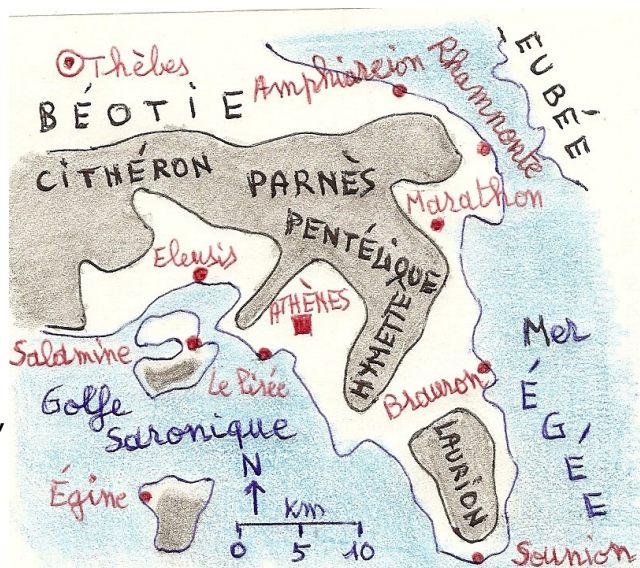 Thèbes
BÉOTIE
Amphiareion
Rhamnonte
EUBÉE
CITHÉRON
PARNÈS
Marathon
PENTÉLIQUE
Eleusis
ATHÈNES
HYMETTE
Mer
ÉGÉE
Salamine
Le Pirée
Brauron
Golfe
Saronique
LAURION
N
Égine
km
0 5 10
Sounion